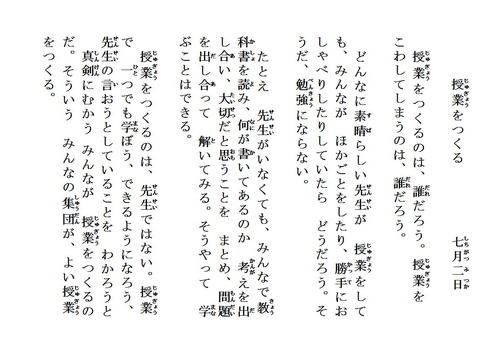 授業をつくる　　七月二日
授業をつくるのは、誰だろう。授業を
こわしてしまうのは、誰だろう。
どんなに素晴らしい先生が　授業をして
も、みんなが　ほかごとをしたり、勝手にお
しゃべりしたりしていたら　どうだろう。そ
うだ、勉強にならない。
たとえ　先生がいなくても、みんなで教
科書を読み、何が書いてあるのか　考えを出
し合い、大切だと思うことを　まとめ、問題
を出し合って　解いてみる。そうやって　学
ぶことはできる。
授業をつくるのは、先生ではない。授業
で　一つでも学ぼう、できるようになろう、
先生の言おうとしていることを　わかろうと
真剣にむかう　みんなが　授業をつくるの
だ。そういう　みんなの集団が、よい授業
をつくる。